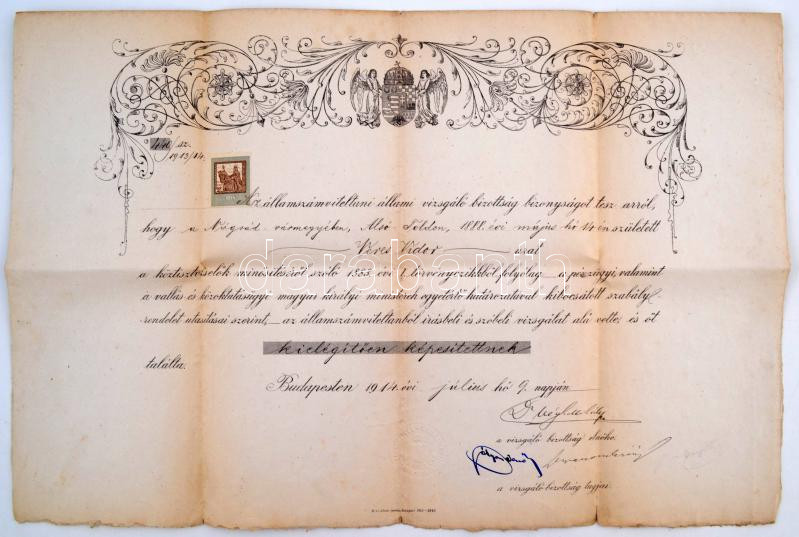 sz.
1913/14.
Az államszámviteltani állami vizsgáló bizottság bizonyságot tesz arról,
hogy a Nógrád vármegyében, Alsó Toldon, 1888. évi május hó 14 én született
Veres Vidor urat
a köztisztviselők minősítéséről szóló 1883. évi I. törvényczikkből folyólag a pénzügyi, valamint
a vallás és közoktatásügyi magyar királyi ministerek egyetértő határozatával kibocsátott szabály-
rendelet utasításai szerint, az államszámviteltanból írásbeli és szóbeli vizsgálat alá vette, és őt
kielégítően képesítettnek
találta.
Budapesten 1914. évi július hó 9. napján
Dr.
a vizsgáló bizottság elnöke.
a vizsgáló bizottság tagjai.
darabanth